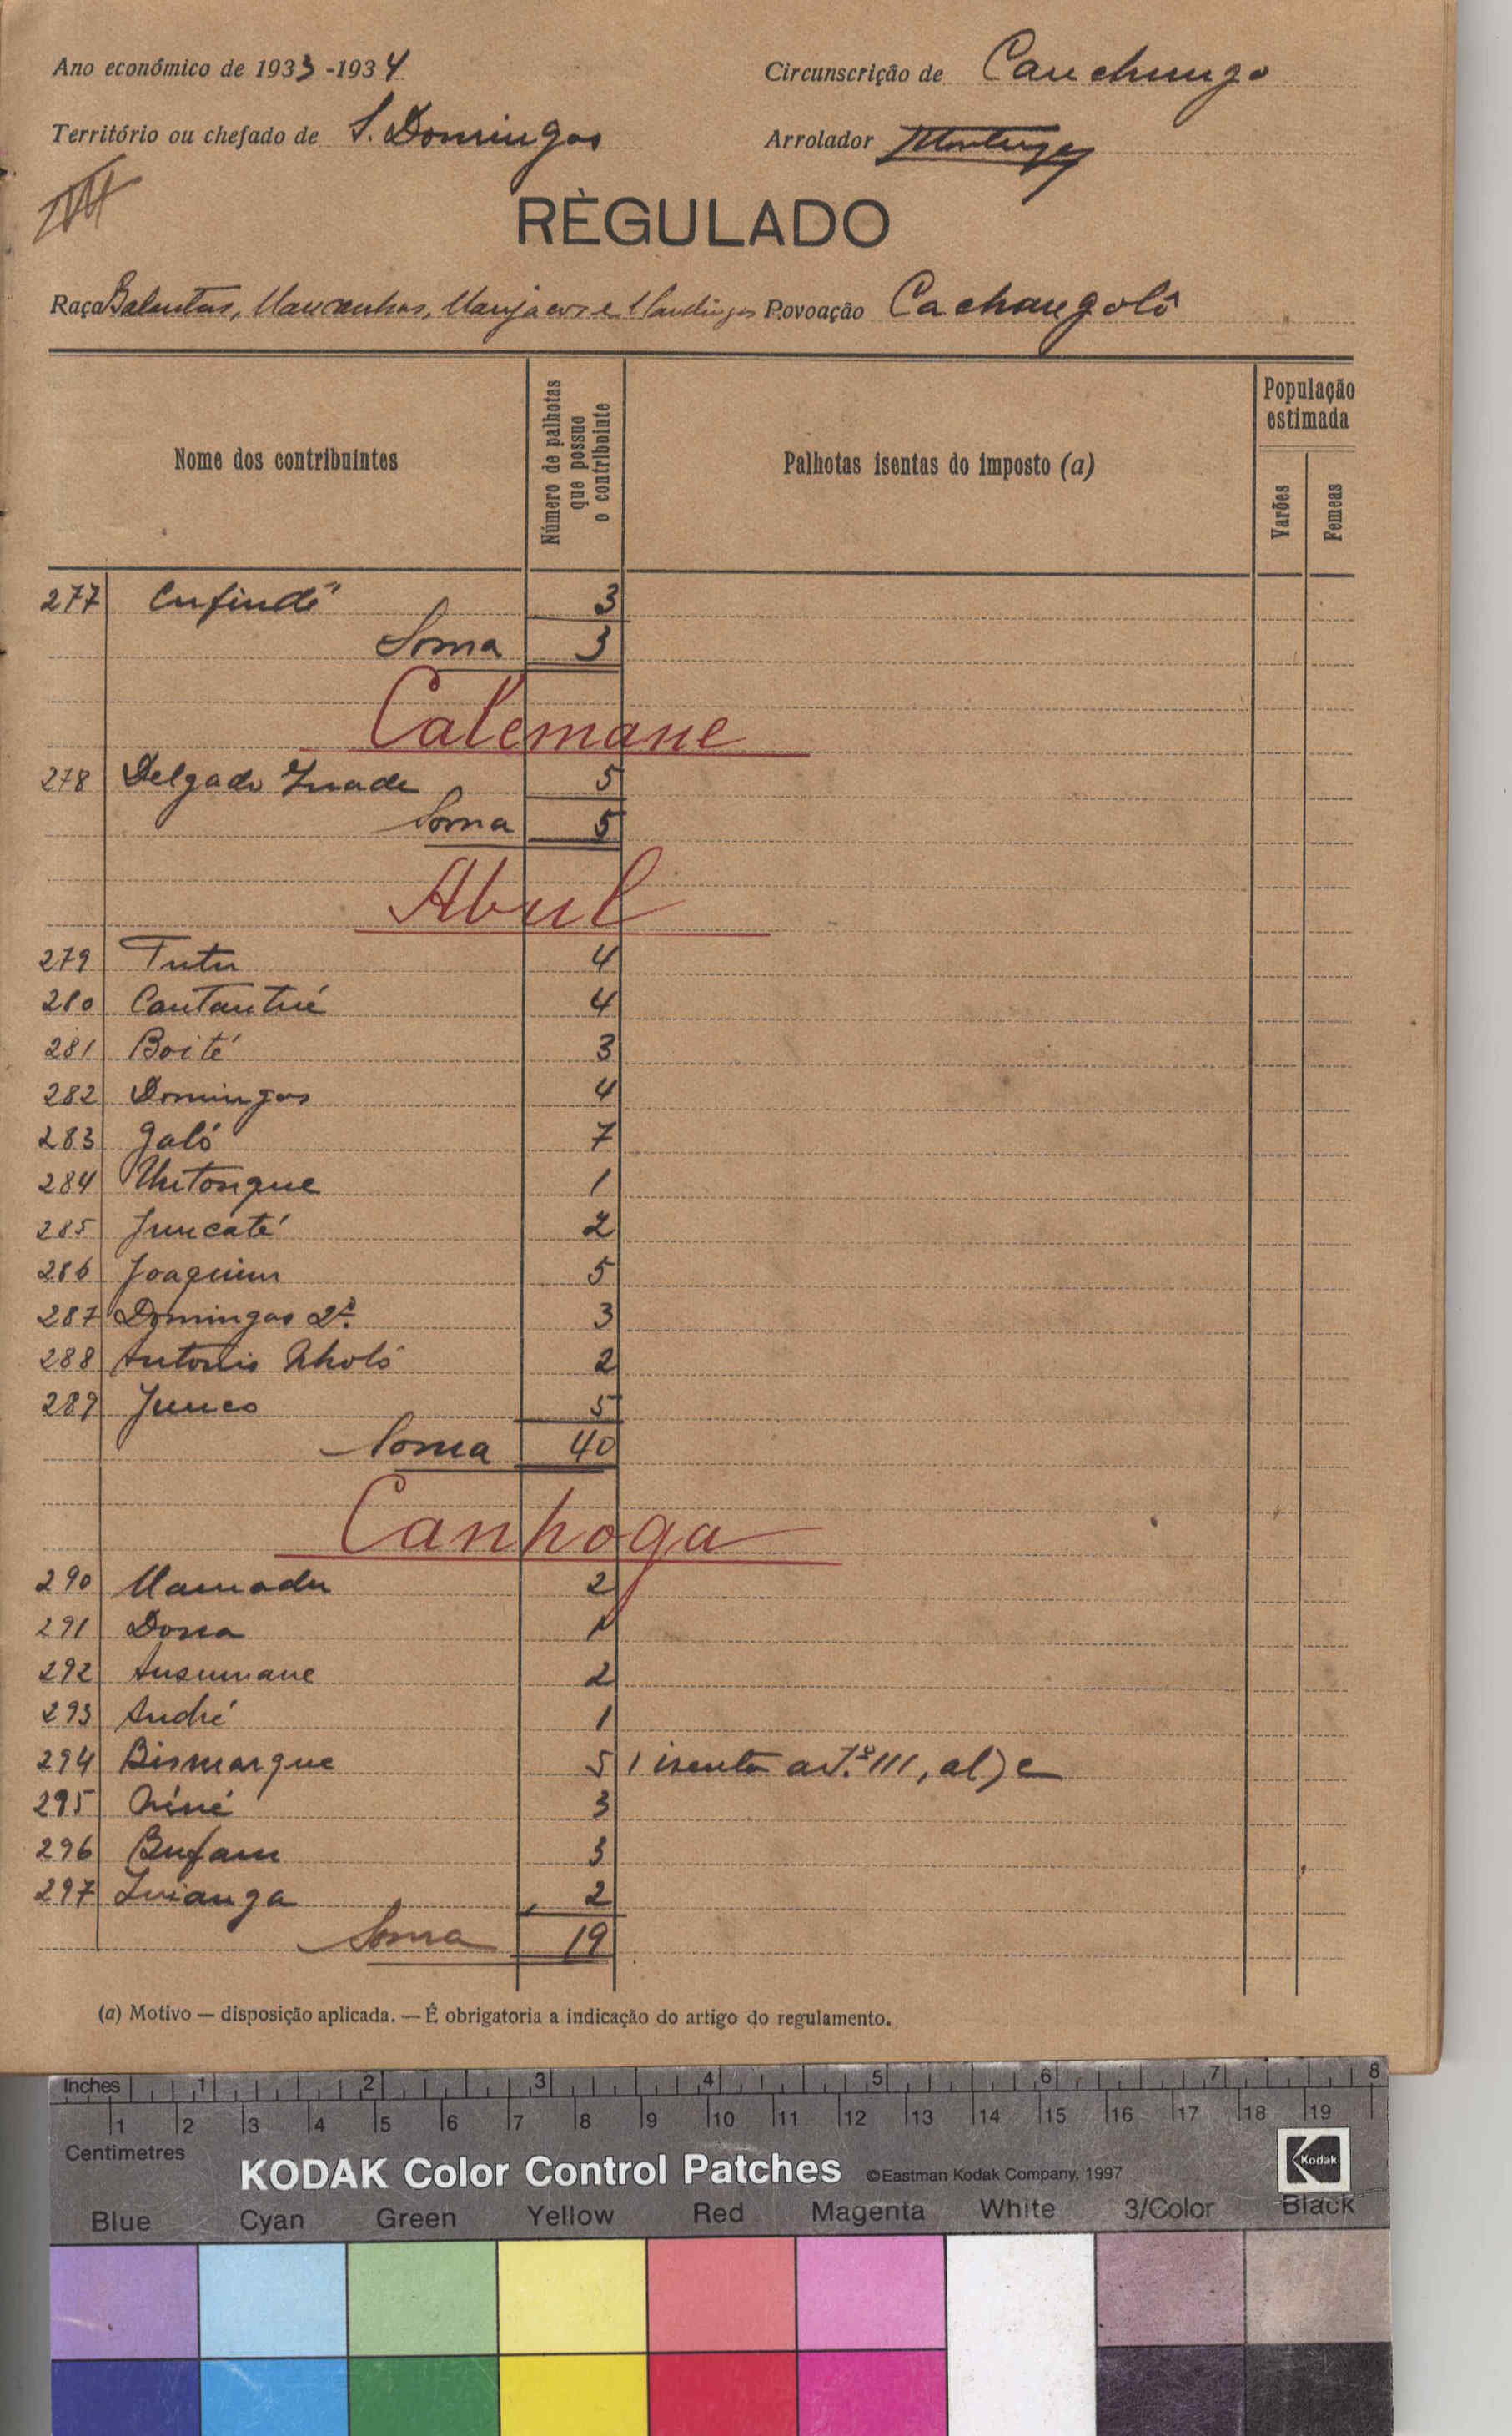 Ano económico de 1933-1934 Circunscrição de Canchungo
Território ou chefado de S. Domingos Arrolador
RÈGULADO
Raça Balantas, Mancanhas, Manjacos e Mandingas Povoação Cachangolô
Nome dos contribuintes Número de palhotas que possue o contribuinte Palhotas isentas do imposto (a) População estimada
Varões Femeas
277 Enfindé 3
Soma 3
Calemane
278 Delgado 5
Soma 5
Abul
279 Tutu 4
280 Cantantué 4
281 Boité 3
282 Domingos 4
283 Galó 7
284 Untongue 1
285 Juncaté 2
286 Joaquim 5
287 Domingos 2º 3
288 Antonio 2
289 Junco 5
Soma 40
Canhoga
290 Mamadu 2
291 1
292 Ansumane 2
293 André 1
294 Bismarque 5 1 isenta art.º 111, al) c
295 3
296 Bufam 3
297 2
Soma 19
(a) Motivo — disposição aplicada. — É obrigatoria a indicação do artigo do regulamento.
Inches 1 2 3 4 5 6 7 8
1 2 3 4 5 6 7 8 9 10 11 12 13 14 15 16 17 18 19
Centimetres
KODAK Color Control Patches ©Eastman Kodak Company, 1997 Kodak
Blue Cyan Green Yellow Red Magenta White 3/Color Black